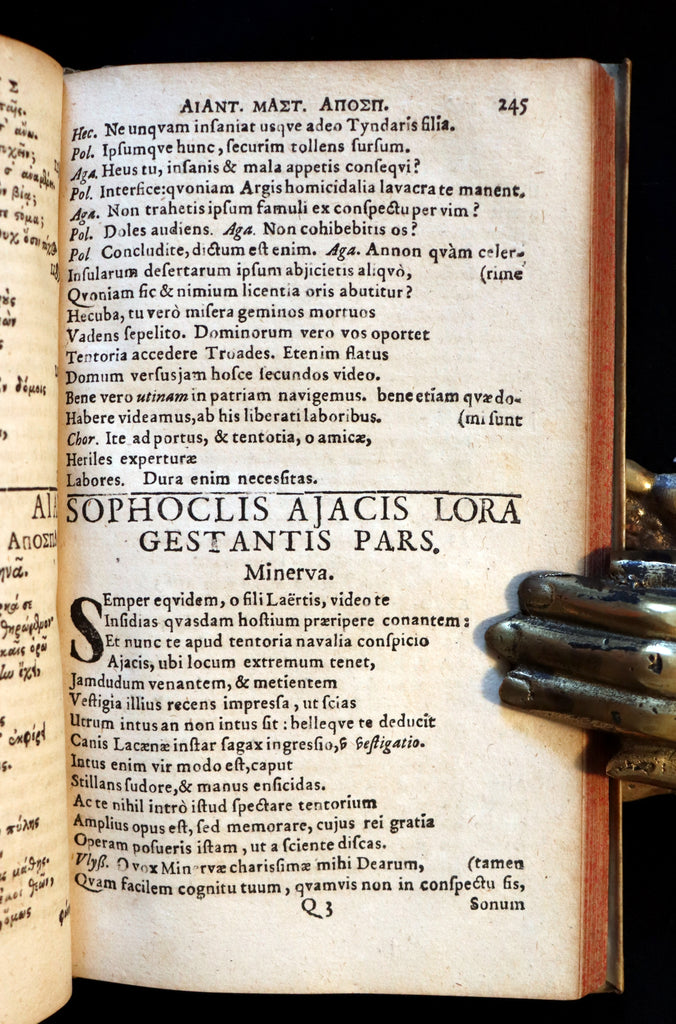 ΑΙΑΝΤ. ΜΑΣΤ. ΑΠΟΣΠ. 245
Hec. Ne unqvam insaniat usqve adeo Tyndaris filia.
Pol. Ipsumqve hunc, securim tollens sursum.
Aga. Heus tu, insanis & mala appetis conseqvi?
Pol. Interfice: qvoniam Argis homicidalia lavacra te manent.
Aga. Non trahetis ipsum famuli ex conspectu per vim?
Pol. Doles audiens. Aga. Non cohibebitis os?
Pol Concludite, dictum est enim. Aga. Annon qvàm celer-
Insularum desertarum ipsum abjicietis aliqvò, (rime
Qvoniam sic & nimium licentia oris abutitur?
Hecuba, tu verò misera geminos mortuos
Vadens sepelito. Dominorum vero vos oportet
Tentoria accedere Troades. Etenim flatus
Domum versus jam hosce secundos video.
Bene vero utinam in patriam navigemus. bene etiam qvæ do-
Habere videamus, ab his liberati laboribus. (mi sunt
Chor. Ite ad portus, & tentotia, o amicæ,
Heriles experturæ
Labores. Dura enim necessitas.
SOPHOCLIS AJACIS LORA
GESTANTIS PARS.
Minerva.
Semper eqvidem, o fili Laërtis, video te
Insidias qvasdam hostium præripere conantem:
Et nunc te apud tentoria navalia conspicio
Ajacis, ubi locum extremum tenet,
Jamdudum venantem, & metientem
Vestigia illius recens impressa, ut scias
Utrum intus an non intus sit: belleqve te deducit
Canis Lacænæ instar sagax ingressio, & vestigatio.
Intus enim vir modo est, caput
Stillans sudore, & manus ensicidas.
Ac te nihil intrò istud spectare tentorium
Amplius opus est, sed memorare, cujus rei gratia
Operam posueris istam, ut a sciente discas.
Vlyss. O vox Minervæ charissimæ mihi Dearum, (tamen
Qvam facilem cognitu tuum, qvamvis non in conspectu sis,
Q 3 Sonum